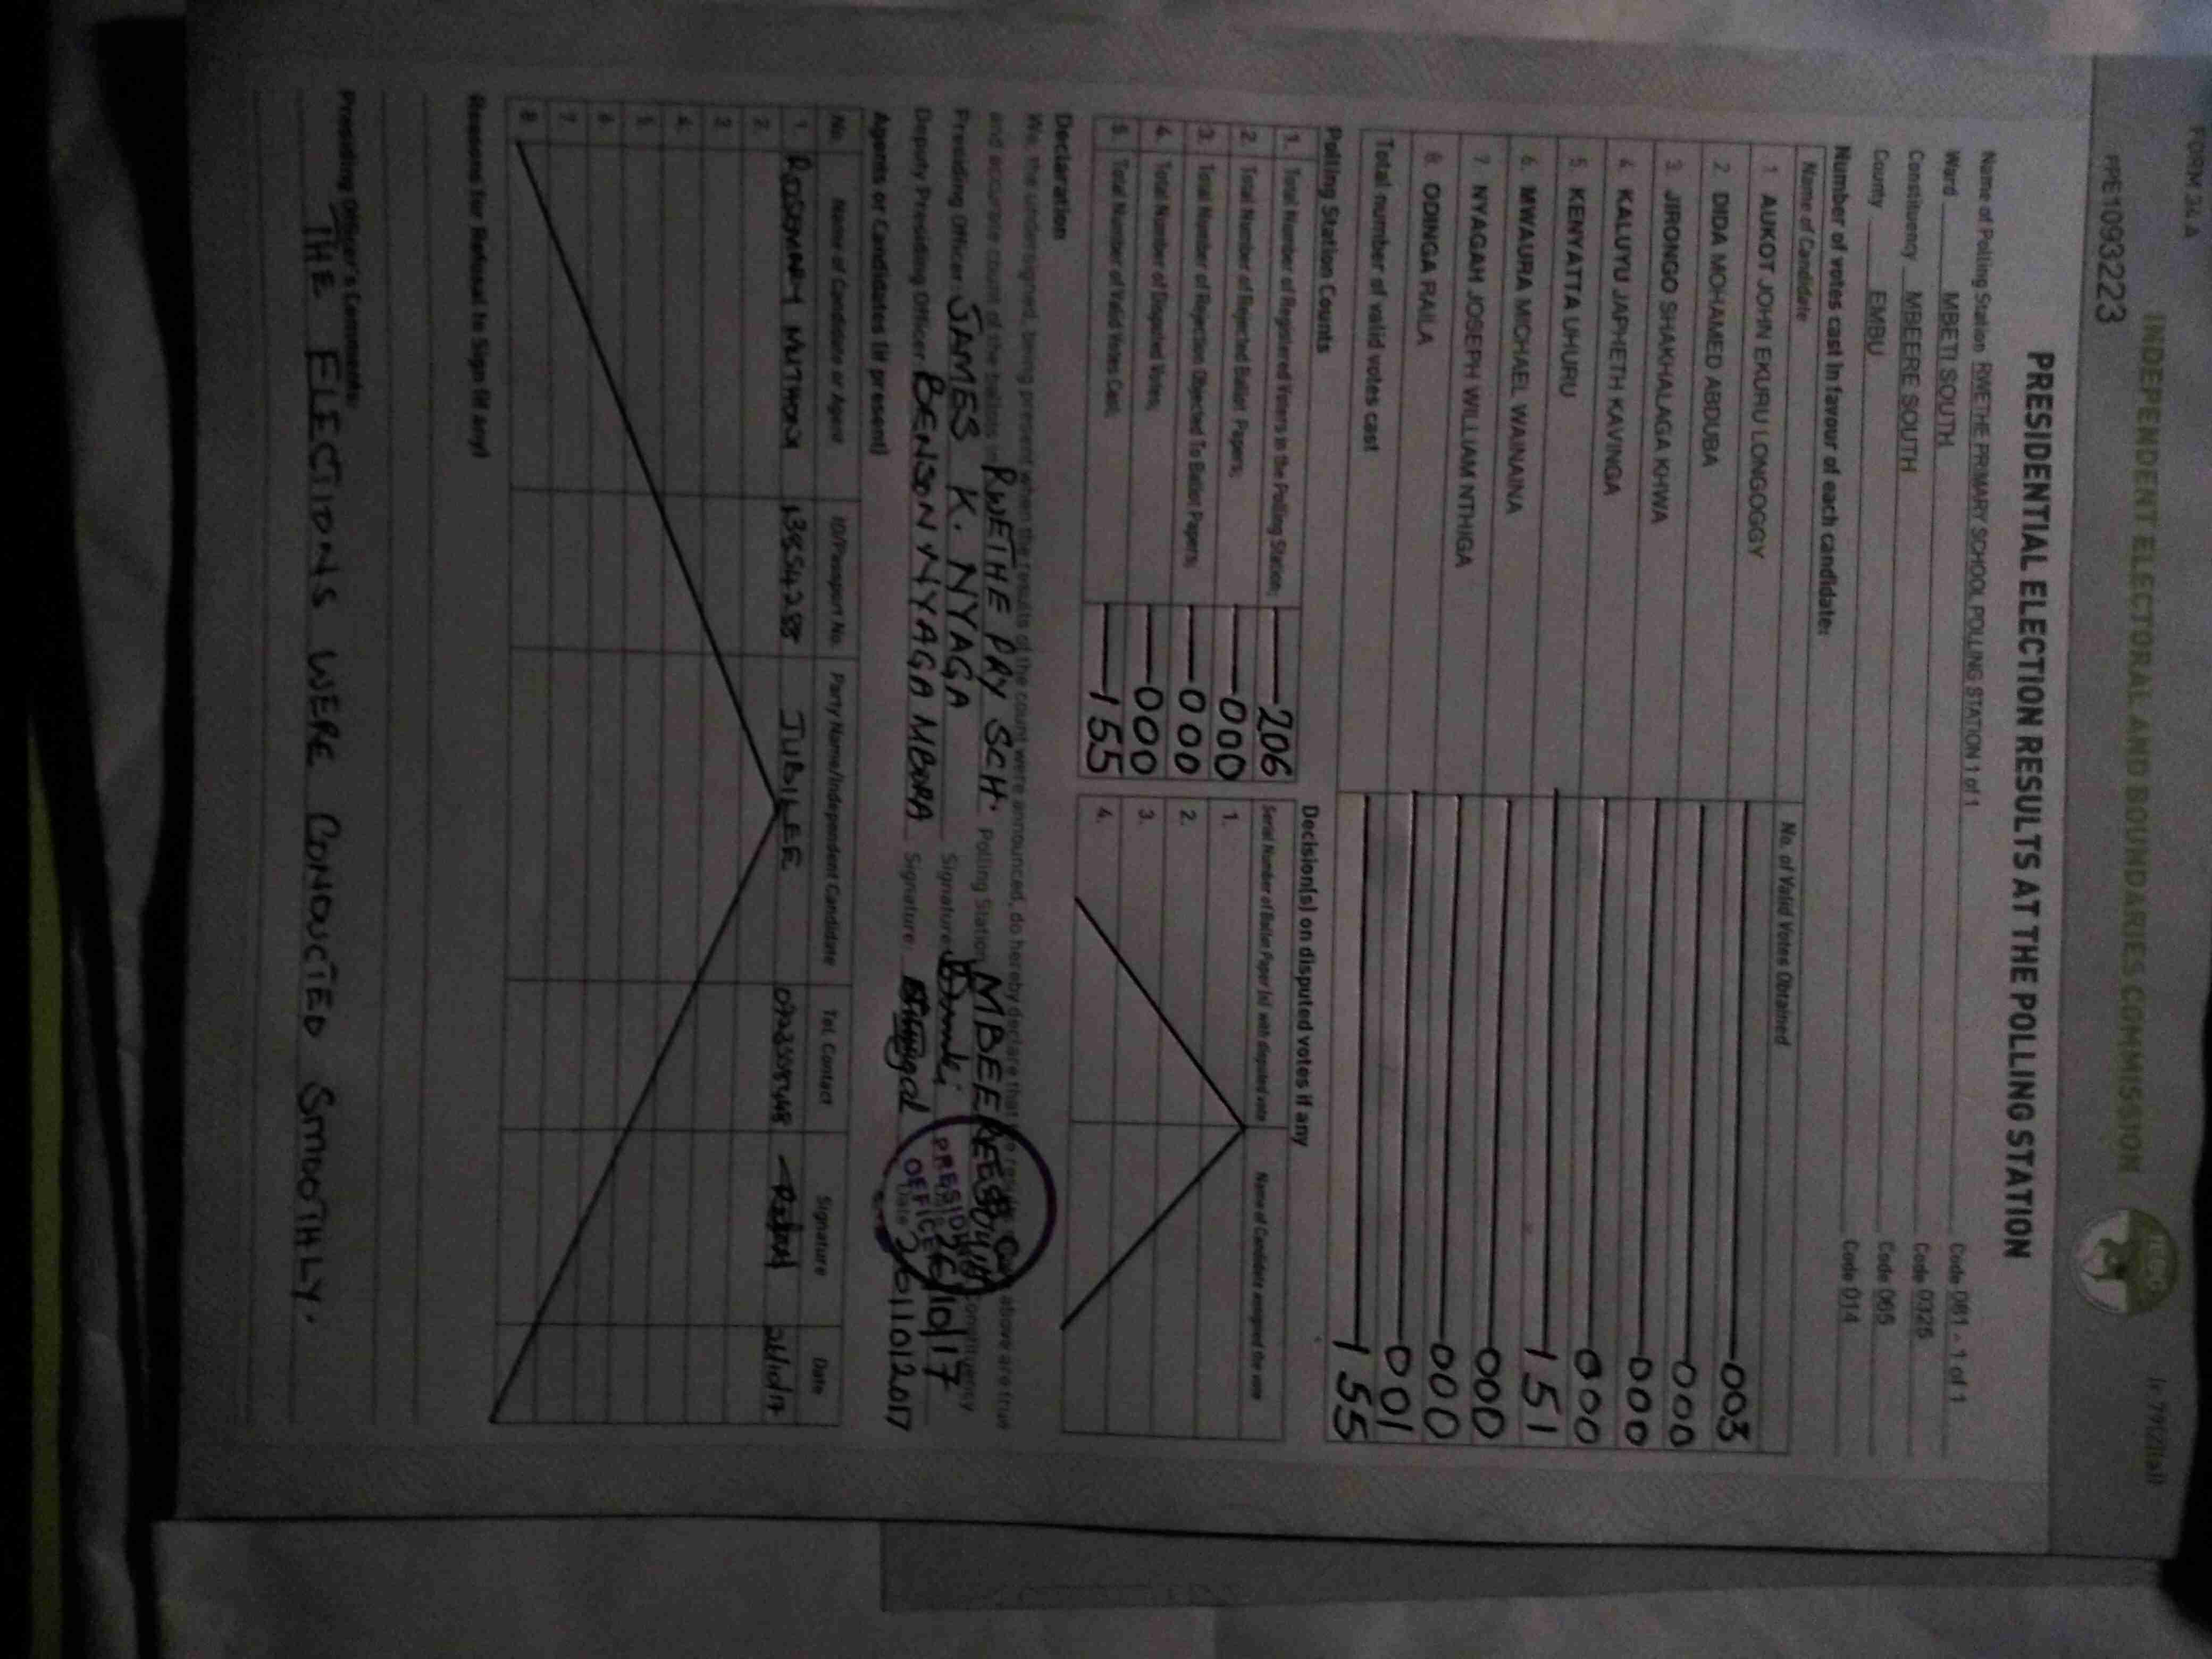 FORM 34A
INDEPENDENT ELECTORAL AND BOUNDARIES COMMISSION
IEBC
PPE1093223
PRESIDENTIAL ELECTION RESULTS AT THE POLLING STATION
Name of Polling Station RWETHE PRIMARY SCHOOL POLLING STATION 1 of 1 Code 081 - 1 of 1
Ward MBETI SOUTH Code 0325
Constituency MBEERE SOUTH Code 065
County EMBU Code 014
Number of votes cast in favour of each candidate:
Name of Candidate No. of Valid Votes Obtained
1 AUKOT JOHN EKURU LONGOGGY 003
2 DIDA MOHAMED ABDUBA 000
3 JIRONGO SHAKHALAGA KHWA 000
4 KALUYU JAPHETH KAVINGA 000
5 KENYATTA UHURU 151
6 MWAURA MICHAEL WAINAINA 000
7 NYAGAH JOSEPH WILLIAM NTHIGA 000
8 ODINGA RAILA 001
Total number of valid votes cast 155
Polling Station Counts
1. Total Number of Registered Voters in the Polling Station; 206
2. Total Number of Rejected Ballot Papers; 000
3. Total Number of Rejection Objected To Ballot Papers; 000
4. Total Number of Disputed Votes; 000
5. Total Number of Valid Votes Cast; 155
Decision(s) on disputed votes if any
Serial Number of Ballot Paper (s) with disputed vote Name of Candidate assigned the vote
1.
2.
3.
4.
Declaration
We, the undersigned, being present when the results of the count were announced, do hereby declare that the results above are true
and accurate count of the ballots in RWETHE PRY SCH. Polling Station MBEERE SOUTH Constituency
Presiding Officer JAMES K. NYAGA Signature 26/10/17
Deputy Presiding Officer BENSON NYAGA MBORA Signature Date 26/10/2017
PRESIDING
OFFICER
Agents or Candidates (if present)
No. Name of Candidate or Agent ID/Passport No. Party Name/Independent Candidate Tel. Contact Signature Date
1. ROSEMARY MUTHONI JUBILEE 26/10/17
2.
3.
4.
5.
6.
7.
8.
Reasons for Refusal to Sign (if any)
Presiding Officer's Comments:
THE ELECTIONS WERE CONDUCTED SMOOTHLY.